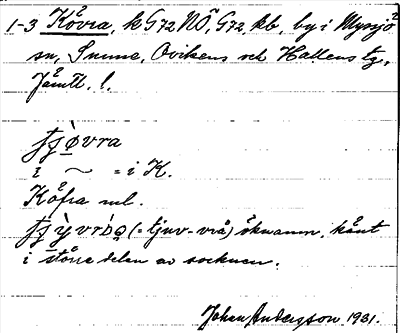 1-3 Kövra, k G72 NÖ, G72, kb, by i Myssjö
sn, Sunne, Ovikens och Hallens tg,
Jämtl. l.
i ~ = i K.
Köfra ml.
(= tjuv-vrå) öknamn, känt
i större delen av socknen.
Johan Andersson 1931.